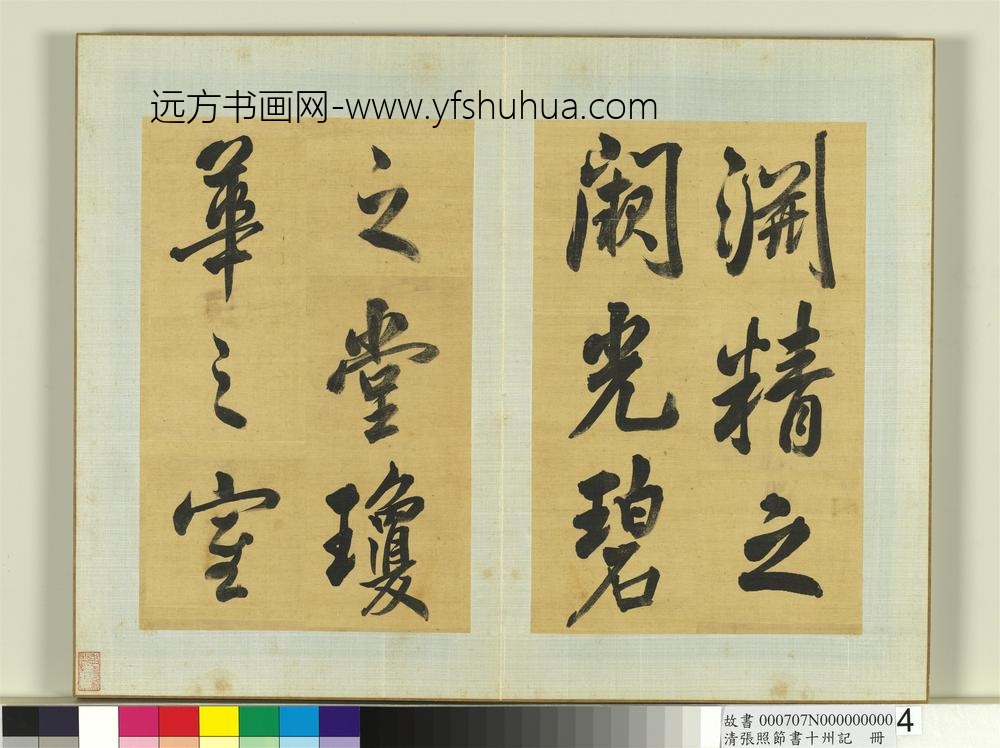 远方书画网-www.yfshuhua.com
淵精之
闕光碧
之堂瓊
華之室
故書 000707N000000000 4
清張照節書十州記 冊